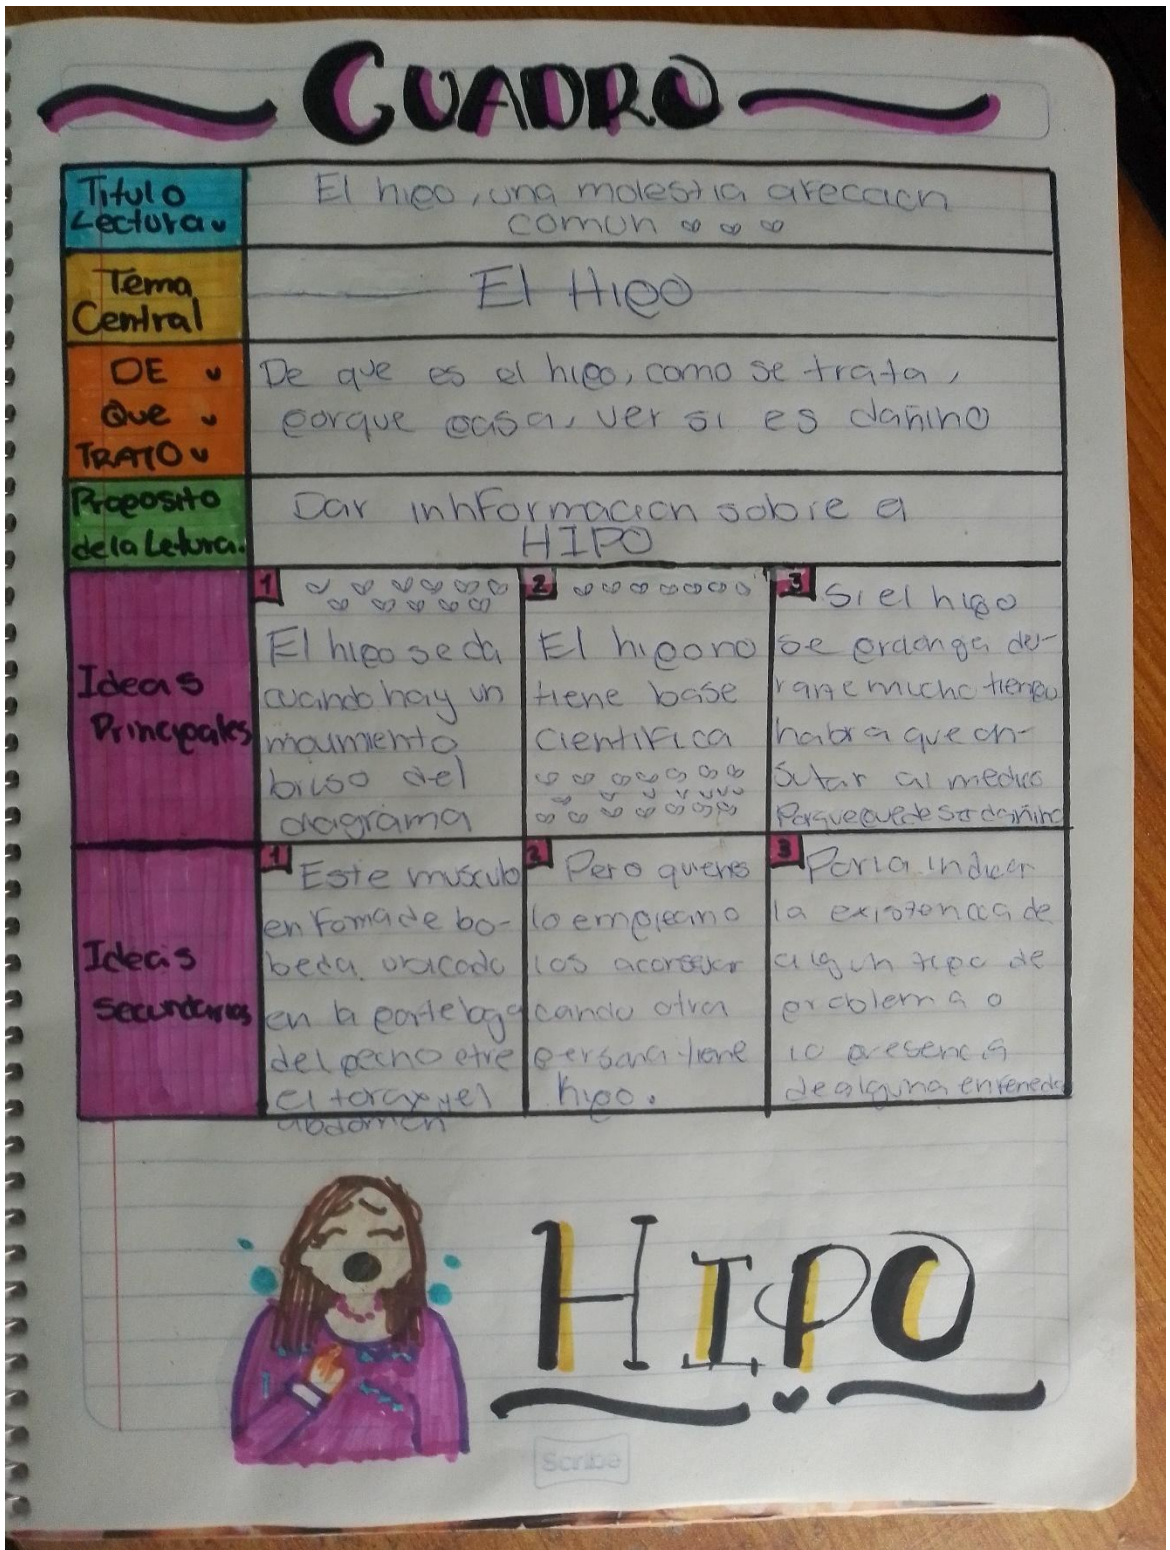 CUADRO
Titulo
Lectura
El hipo, una molestia afecacn
comun
Tema
Central
El Hipo
DE
Que
TRATO
De que es el hipo, como se trata,
porque pasa, ver si es dañino
Proposito
de la Letura.
Dar inhformacion sobre el
HIPO
Ideas
Principales
1
El hipo se da
cuando hay un
moumiento
del
diagrama
2
El hipo no
tiene base
cientifica
3
Si el hipo
se prolonga du-
rante mucho tiempo
habra que con-
sutar al medico
Porque puede ser dañino
Ideas
Secundarias
1
Este musculo
en Forma de bo-
beda, ubicado
en la parte baga
del pecho etre
el torax y el
abdomen
2
Pero quienes
lo emplean o
los aconsejar
cando otra
persona tiene
hipo.
3
indicar
la existencia de
algun tipo de
problema o
la presencia
de alguna
HIPO
Scribe